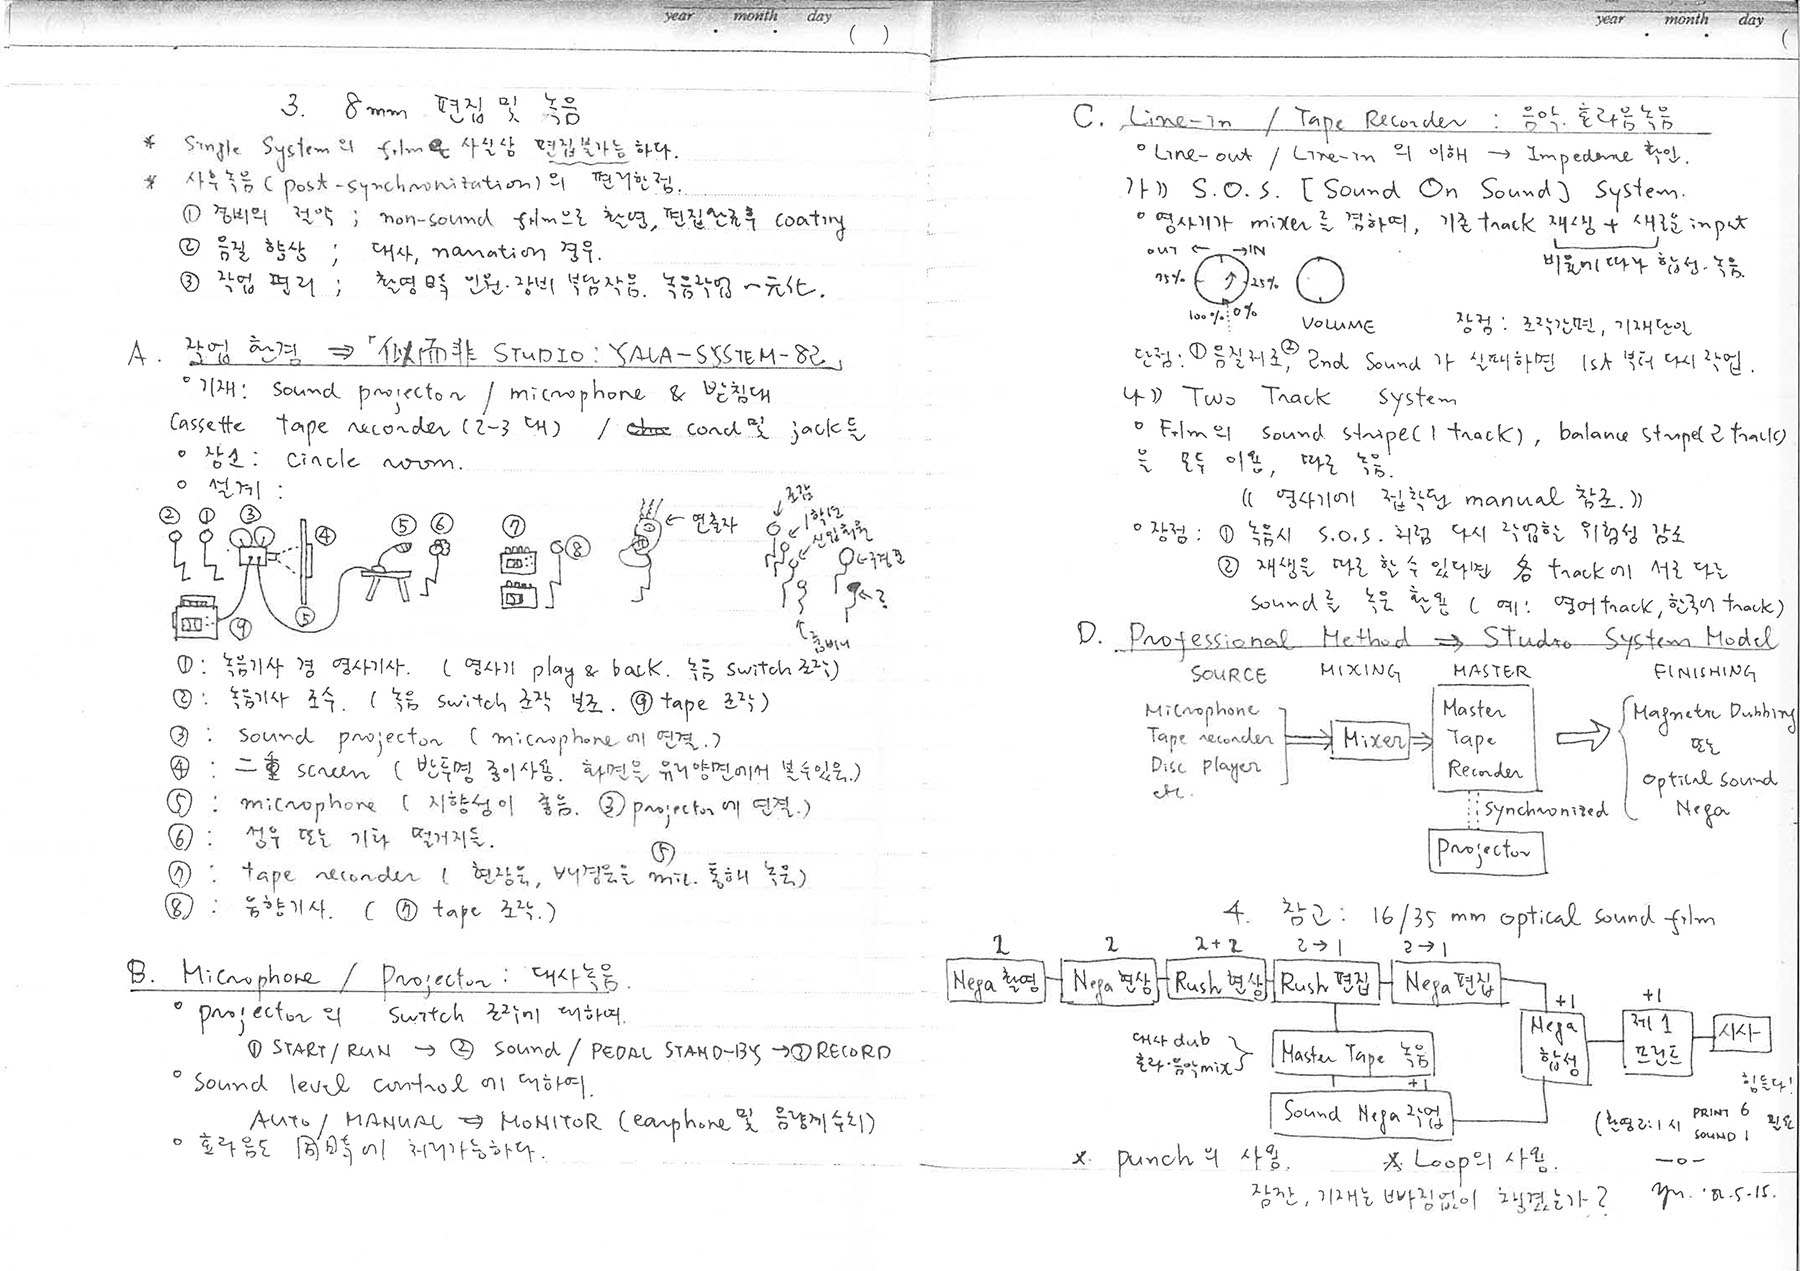 year month day
( )
3. 8mm 편집 및 녹음
* Single System의 film은 사실상 편집불가능하다.
* 사후녹음(post-synchronization)의 편리한점.
① 경비의 절약 ; non-sound film으로 촬영, 편집완료후 coating
② 음질 향상 ; 대사, narration 경우.
③ 작업 편리 ; 촬영時 인원·장비 부담작음. 녹음작업 一元化.
A. 작업 환경 ⇒ 「似而非 STUDIO: YALA-SYSTEM-82」
° 기재: sound projector / microphone & 받침대
Cassette tape recorder (2-3 대) / cord 및 jack들
° 장소: circle room.
° 설계:
② ① ③ ④ ⑤ ⑥ ⑦ ⑧ ← 연출자
조감
1학년
신입회원
구경꾼
?
⑤
⑨
①: 녹음기사 겸 영사기사. (영사기 play & back. 녹음 switch 조작)
②: 녹음기사 조수. (녹음 switch 조작 보조. ⑨ tape 조작)
③: sound projector (microphone에 연결.)
④: 二重 screen (반투명 종이사용. 화면을 유리양면에서 볼수있음.)
⑤: microphone (지향성이 좋음. ③ projector에 연결.)
⑥: 성우 또는 기타 떨거지들.
⑦: tape recorder (현장음, 배경음을 ⑤ mic. 통해 녹음)
⑧: 음향기사. (⑦ tape 조작.)
B. Microphone / Projector: 대사녹음.
° projector의 switch 조작에 대하여.
① START/RUN → ② Sound/PEDAL STAND-BY → ③ RECORD
° Sound level control에 대하여.
AUTO / MANUAL ⇒ MONITOR (earphone 및 음량계수리)
° 효과음도 同時에 처리가능하다.
year month day
(
C. Line-in / Tape Recorder : 음악. 효과음녹음
° Line-out / Line-in 의 이해 → Impedeme 확인.
가)) S.O.S. [Sound On Sound] System.
° 영사기가 mixer를 겸하며, 기존 track 재생 + 새로운 input
비율에 따라 합성·녹음.
OUT ← → IN
75% 25%
100% 0%
VOLUME
장점: 조작간편, 기재단일
단점: ① 음질저조, ② 2nd Sound가 실패하면 1st부터 다시 작업.
나)) Two Track System
° Film의 sound stripe(1 track), balance stripe(2 track)
을 모두 이용, 따로 녹음.
(( 영사기에 첨부된 manual 참조. ))
° 장점: ① 녹음시 S.O.S. 처럼 다시 작업할 위험성 감소
② 재생을 따로 할 수 있다면 各 track에 서로 다른
sound를 녹음 활용 (예: 영어track, 한국어track)
D. Professional Method ⇒ Studio System Model
SOURCE MIXING MASTER FINISHING
Microphone
Tape recorder
Disc player
etc.
Mixer
Master
Tape
Recorder
Magnetic Dubbing
또는
optical sound
Nega
Synchronized
Projector
4. 참고: 16/35 mm optical sound film
2 2 2+2 2→1 2→1
Nega 촬영 Nega 현상 Rush 현상 Rush 편집 Nega 편집
+1 +1
Nega 합성 제 1 프린트 시사
대사 dub
효과·음악mix
Master Tape 녹음
+1
Sound Nega 작업
힘들다!
(촬영 2:1 시 PRINT 6 SOUND 1 필요
—o—
*. punch의 사용. *. Loop의 사용.
잠깐, 기재는 빠짐없이 챙겼는가?
'82.5-15.